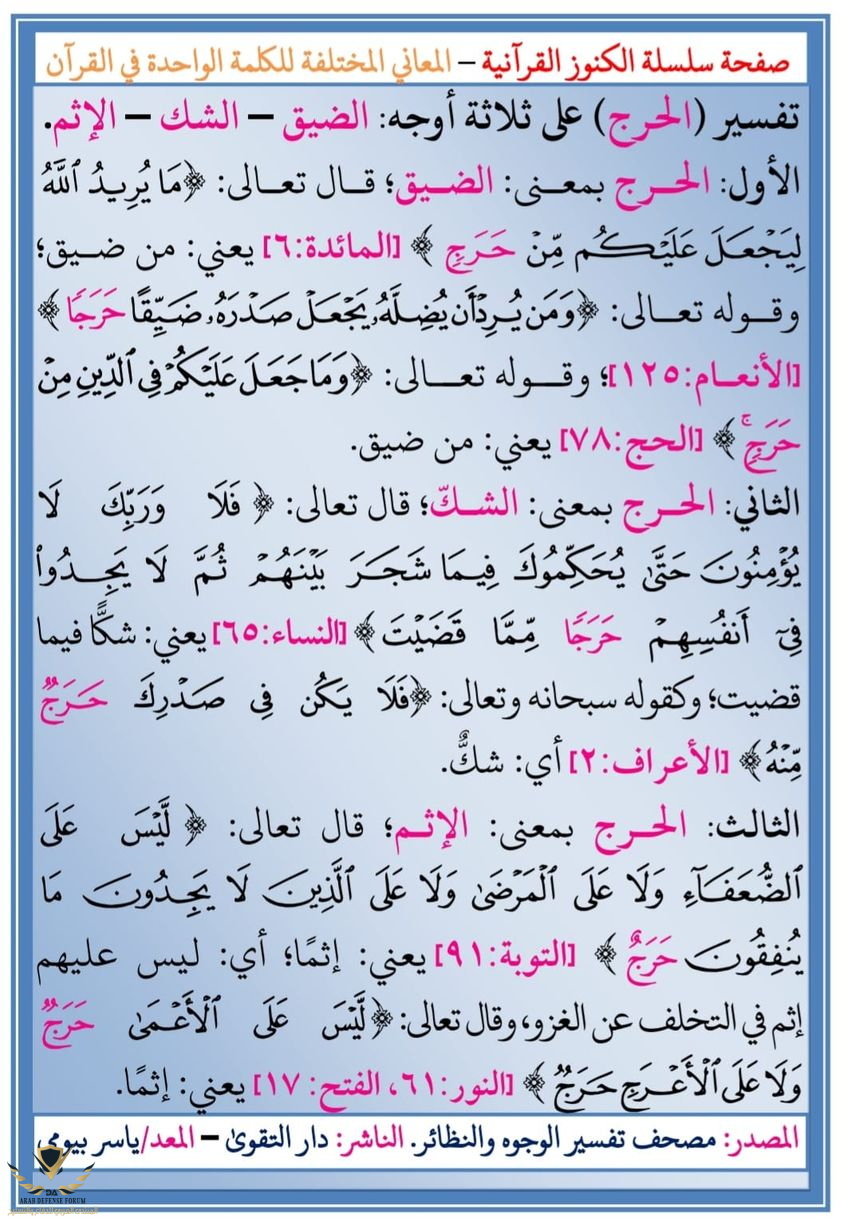 صفحة سلسلة الكنوز القرآنية – المعاني المختلفة للكلمة الواحدة في القرآن
تفسير (الحرج) على ثلاثة أوجه: الضيق – الشك – الإثم.
الأول: الحرج بمعنى: الضيق؛ قال تعالى: ﴿مَا يُرِيدُ ٱللَّهُ
لِيَجۡعَلَ عَلَيۡكُم مِّنۡ حَرَجٖ ﴾ [المائدة:٦] يعني: من ضيق؛
وقوله تعالى: ﴿وَمَن يُرِدۡ أَن يُضِلَّهُۥ يَجۡعَلۡ صَدۡرَهُۥ ضَيِّقًا حَرَجٗا ﴾
[الأنعام:١٢٥]؛ وقوله تعالى: ﴿وَمَا جَعَلَ عَلَيۡكُمۡ فِي ٱلدِّينِ مِنۡ
حَرَجٖۚ ﴾ [الحج:٧٨] يعني: من ضيق.
الثاني: الحرج بمعنى: الشكّ؛ قال تعالى: ﴿ فَلَا وَرَبِّكَ لَا
يُؤۡمِنُونَ حَتَّىٰ يُحَكِّمُوكَ فِيمَا شَجَرَ بَيۡنَهُمۡ ثُمَّ لَا يَجِدُواْ
فِيٓ أَنفُسِهِمۡ حَرَجٗا مِّمَّا قَضَيۡتَ ﴾ [النساء:٦٥] يعني: شكًّا فيما
قضيت؛ وكقوله سبحانه وتعالى: ﴿فَلَا يَكُن فِي صَدۡرِكَ حَرَجٞ
مِّنۡهُ ﴾ [الأعراف:٢] أي: شكٌّ.
الثالث: الحرج بمعنى: الإثم؛ قال تعالى: ﴿ لَّيۡسَ عَلَى
ٱلضُّعَفَآءِ وَلَا عَلَى ٱلۡمَرۡضَىٰ وَلَا عَلَى ٱلَّذِينَ لَا يَجِدُونَ مَا
يُنفِقُونَ حَرَجٌ ﴾ [التوبة:٩١] يعني: إثمًا؛ أي: ليس عليهم
إثم في التخلف عن الغزو، وقال تعالى: ﴿لَّيۡسَ عَلَى ٱلۡأَعۡمَىٰ حَرَجٞ
وَلَا عَلَى ٱلۡأَعۡرَجِ حَرَجٞ ﴾ [النور:٦١، الفتح: ١٧] يعني: إثمًا.
المصدر: مصحف تفسير الوجوه والنظائر. الناشر: دار التقوىٰ – المعد/ياسر بيومي
DA
ARAB DEFENSE FORUM